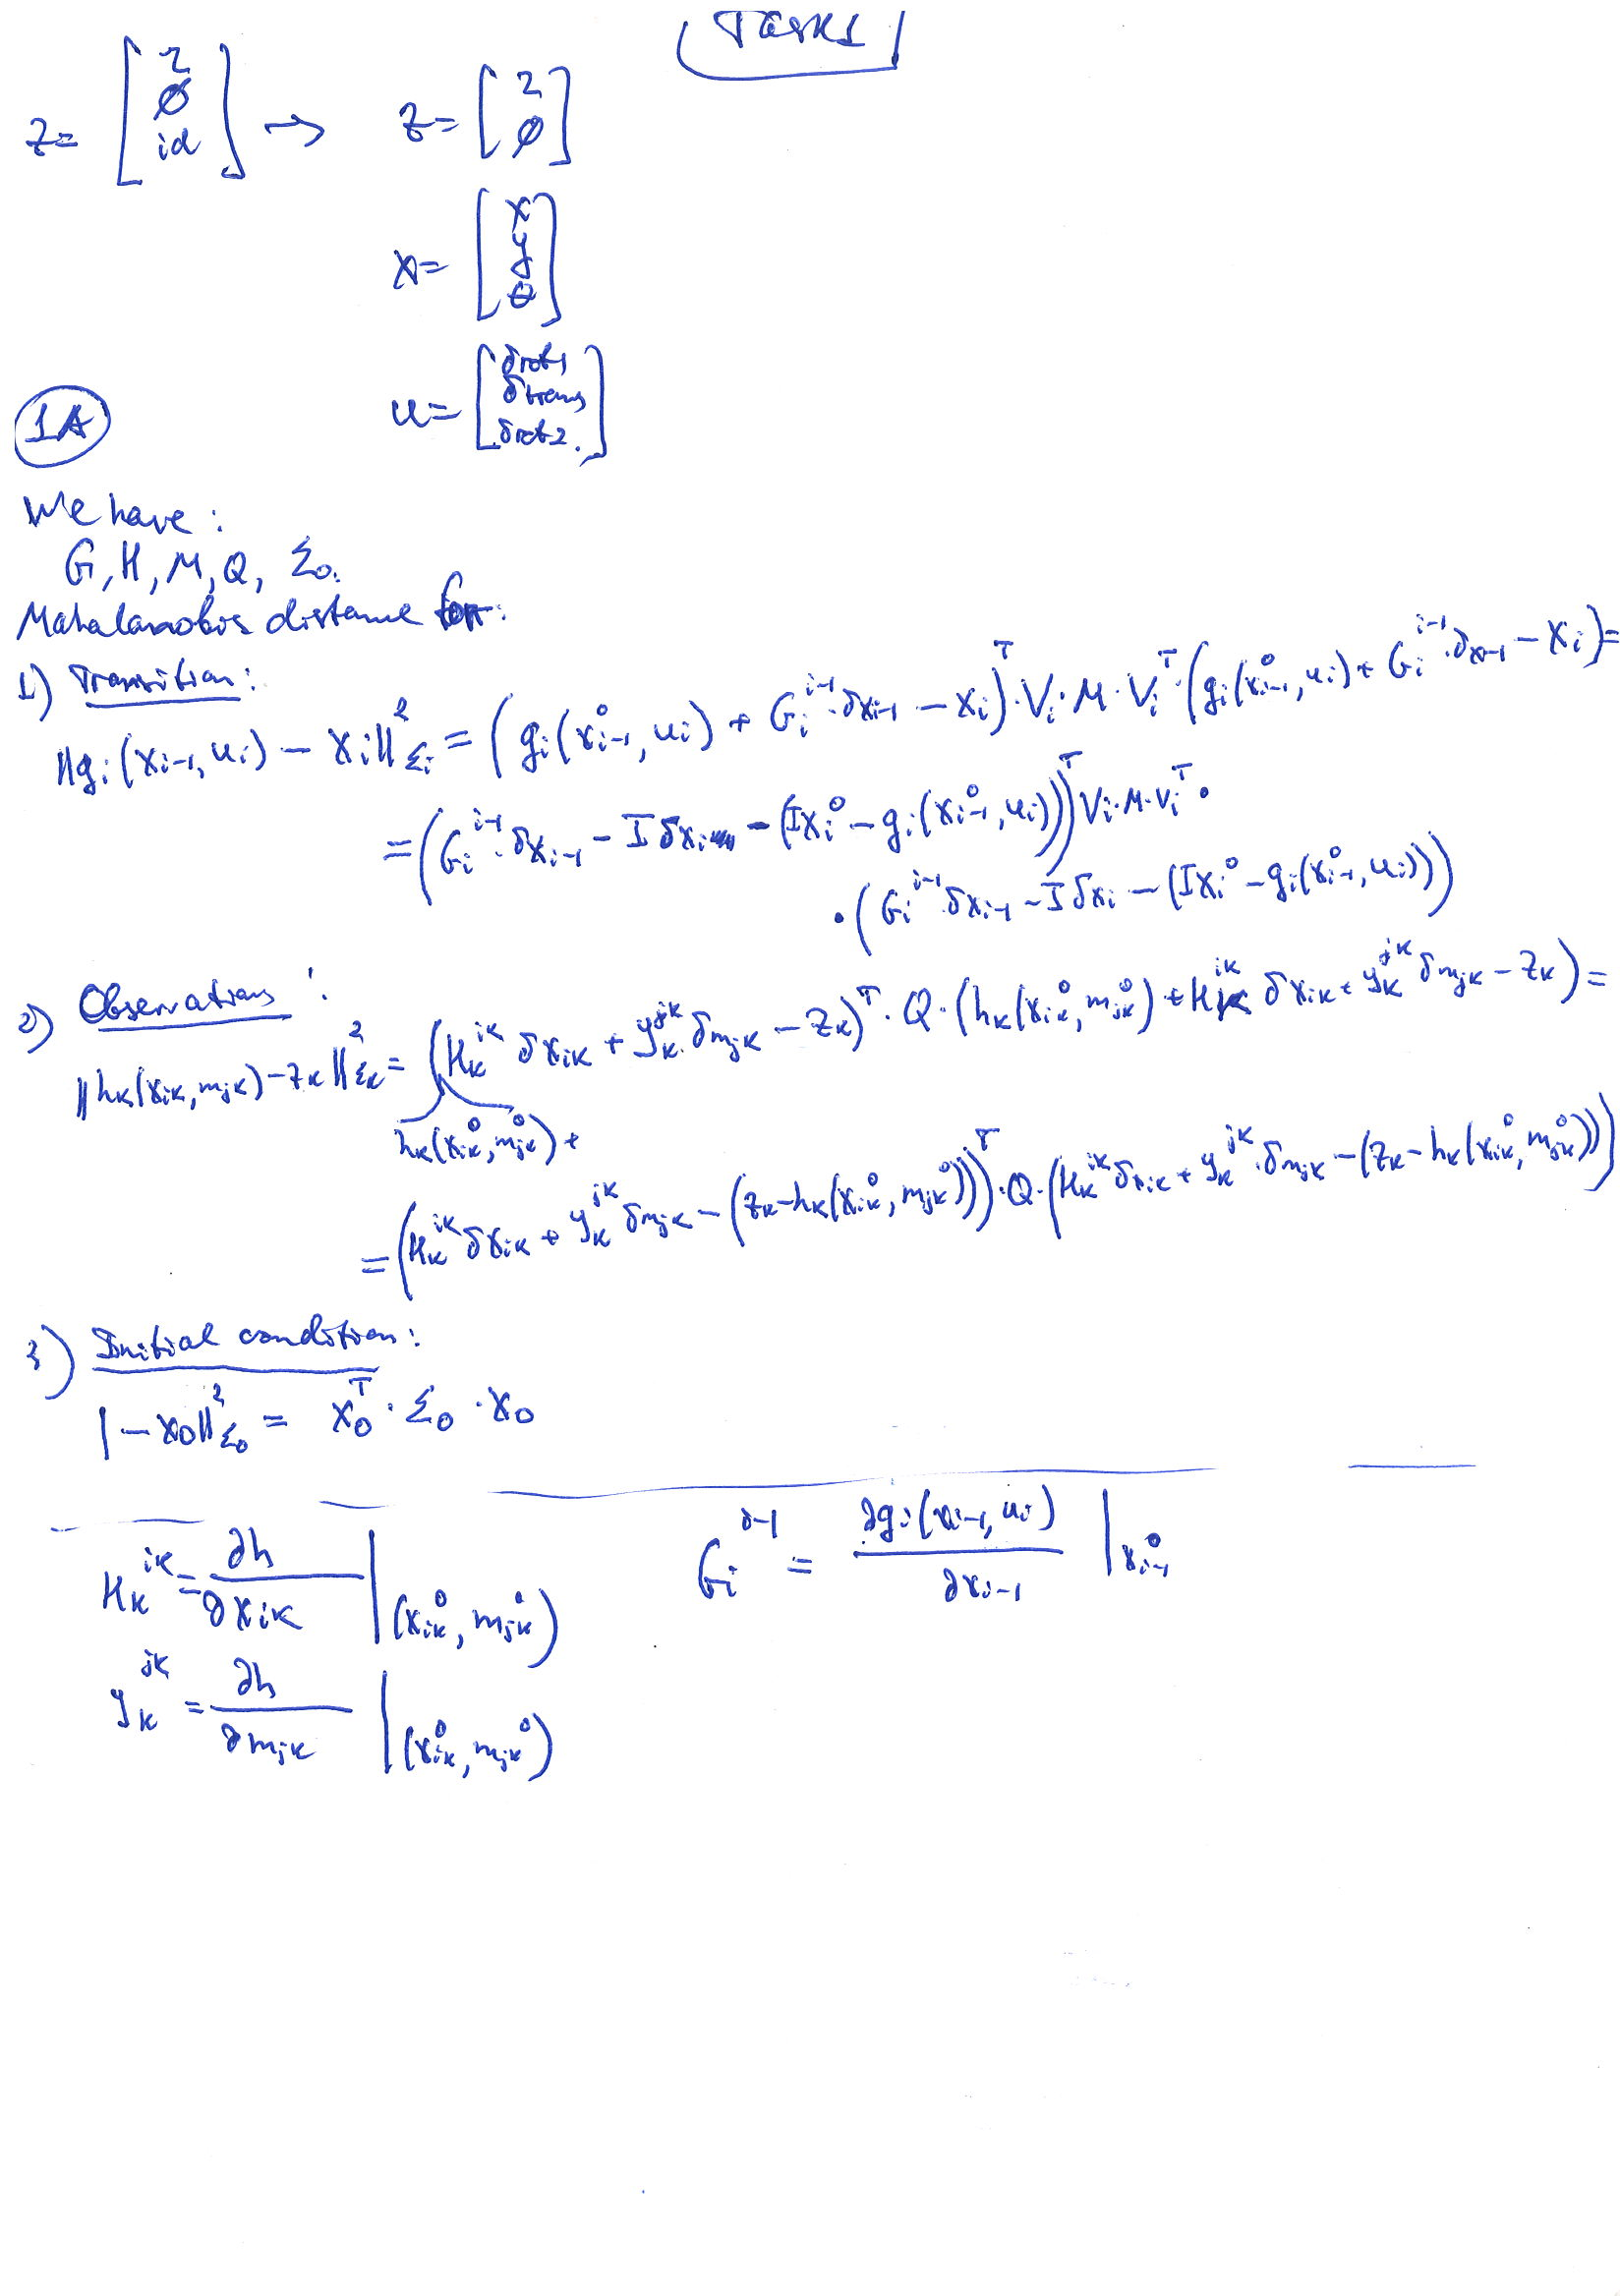 Task 1
z = [r φ id] → z = [r φ]
x = [x y θ]
u = [δrot1 δtrans δrot2]
1A
We have:
G, H, M, Q, Σ₀.
Mahalanobis distance for:
1) Transition:
‖gᵢ(xᵢ₋₁, uᵢ) − xᵢ‖²_Σᵢ = (gᵢ(x⁰ᵢ₋₁, uᵢ) + Gᵢⁱ⁻¹·δxᵢ₋₁ − xᵢ)ᵀ·Vᵢ·M·Vᵢᵀ·(gᵢ(x⁰ᵢ₋₁, uᵢ) + Gᵢⁱ⁻¹·δxᵢ₋₁ − xᵢ) =
= (Gᵢⁱ⁻¹·δxᵢ₋₁ − I δxᵢ − (Ixᵢ⁰ − gᵢ(x⁰ᵢ₋₁, uᵢ)))ᵀ Vᵢ·M·Vᵢᵀ ·
· (Gᵢⁱ⁻¹ δxᵢ₋₁ − I δxᵢ − (Ixᵢ⁰ − gᵢ(x⁰ᵢ₋₁, uᵢ)))
2) Observations:
‖h_k(x_ik, m_jk) − z_k‖²_Σk = (H_k^ik δx_ik + J_k^jk δm_jk − z_k)ᵀ · Q · (h_k(x⁰_ik, m⁰_jk) + H_k^ik δx_ik + J_k^jk δm_jk − z_k) =
h_k(x⁰_ik, m⁰_jk) +
= (H_k^ik δx_ik + J_k^jk δm_jk − (z_k − h_k(x⁰_ik, m⁰_jk)))ᵀ · Q · (H_k^ik δx_ik + J_k^jk · δm_jk − (z_k − h_k(x⁰_ik, m⁰_jk)))
3) Initial condition:
‖−x₀‖²_Σ₀ = x₀ᵀ · Σ₀ · x₀
H_k^ik = ∂h / ∂x_ik |(x⁰_ik, m⁰_jk) Gᵢⁱ⁻¹ = ∂gᵢ(xᵢ₋₁, uᵢ) / ∂xᵢ₋₁ |x⁰ᵢ₋₁
J_k^jk = ∂h / ∂m_jk |(x⁰_ik, m⁰_jk)